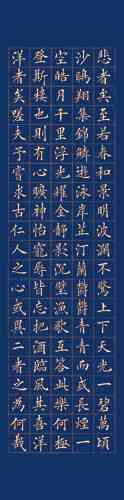 悲者矣至若春和景明波瀾不驚上下天光一碧萬頃
沙鷗翔集錦鱗游泳岸芷汀蘭鬱鬱青青而或長煙一
空皓月千里浮光耀金靜影沉璧漁歌互答此樂何極
登斯樓也則有心曠神怡寵辱皆忘把酒臨風其喜洋
洋者矣嗟夫予嘗求古仁人之心或異二者之為何哉